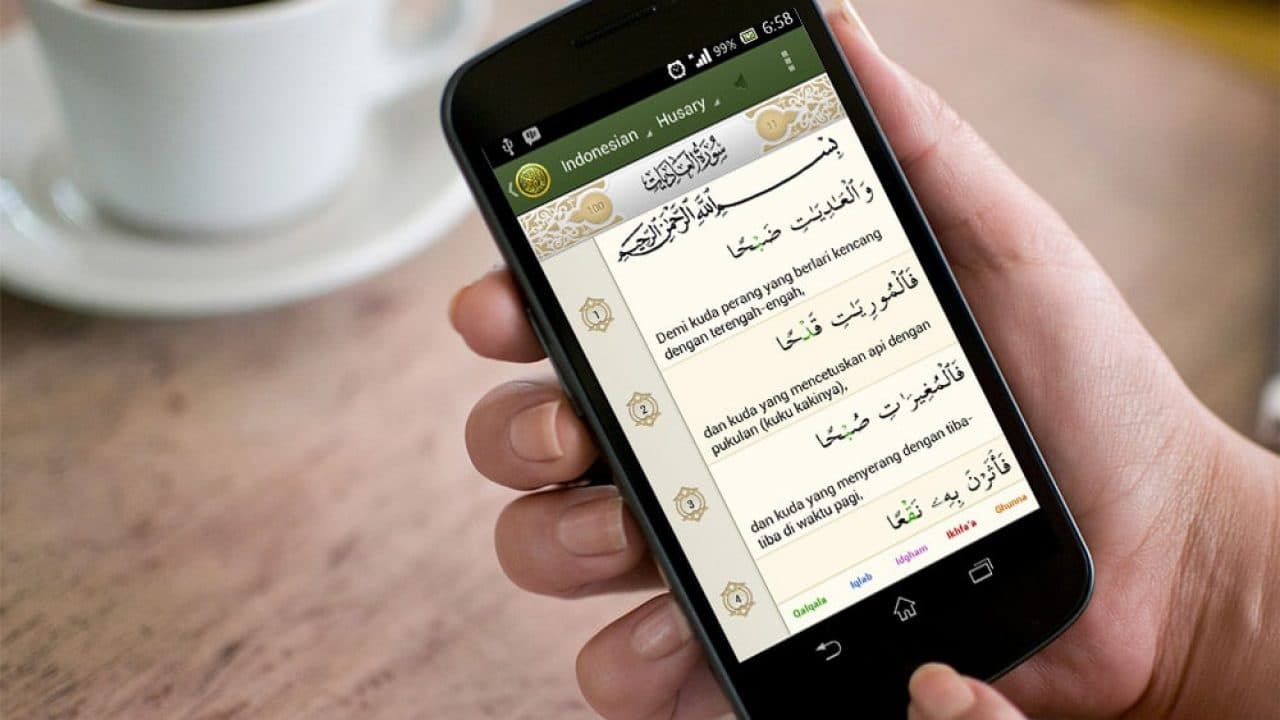 99% 6:58
Indonesian Husary
100 سُورَةُ العَادِيَات 11
بِسْمِ اللَّهِ الرَّحْمَٰنِ الرَّحِيمِ
وَٱلْعَـٰدِيَـٰتِ ضَبْحًا
1
Demi kuda perang yang berlari kencang
dengan terengah-engah,
فَٱلْمُورِيَـٰتِ قَدْحًا
2
dan kuda yang mencetuskan api dengan
pukulan (kuku kakinya),
فَٱلْمُغِيرَٰتِ صُبْحًا
3
dan kuda yang menyerang dengan tiba-
tiba di waktu pagi,
فَأَثَرْنَ بِهِۦ نَقْعًا
4
Qalqala Iqlab Idgham Ikhfa'a Ghunna